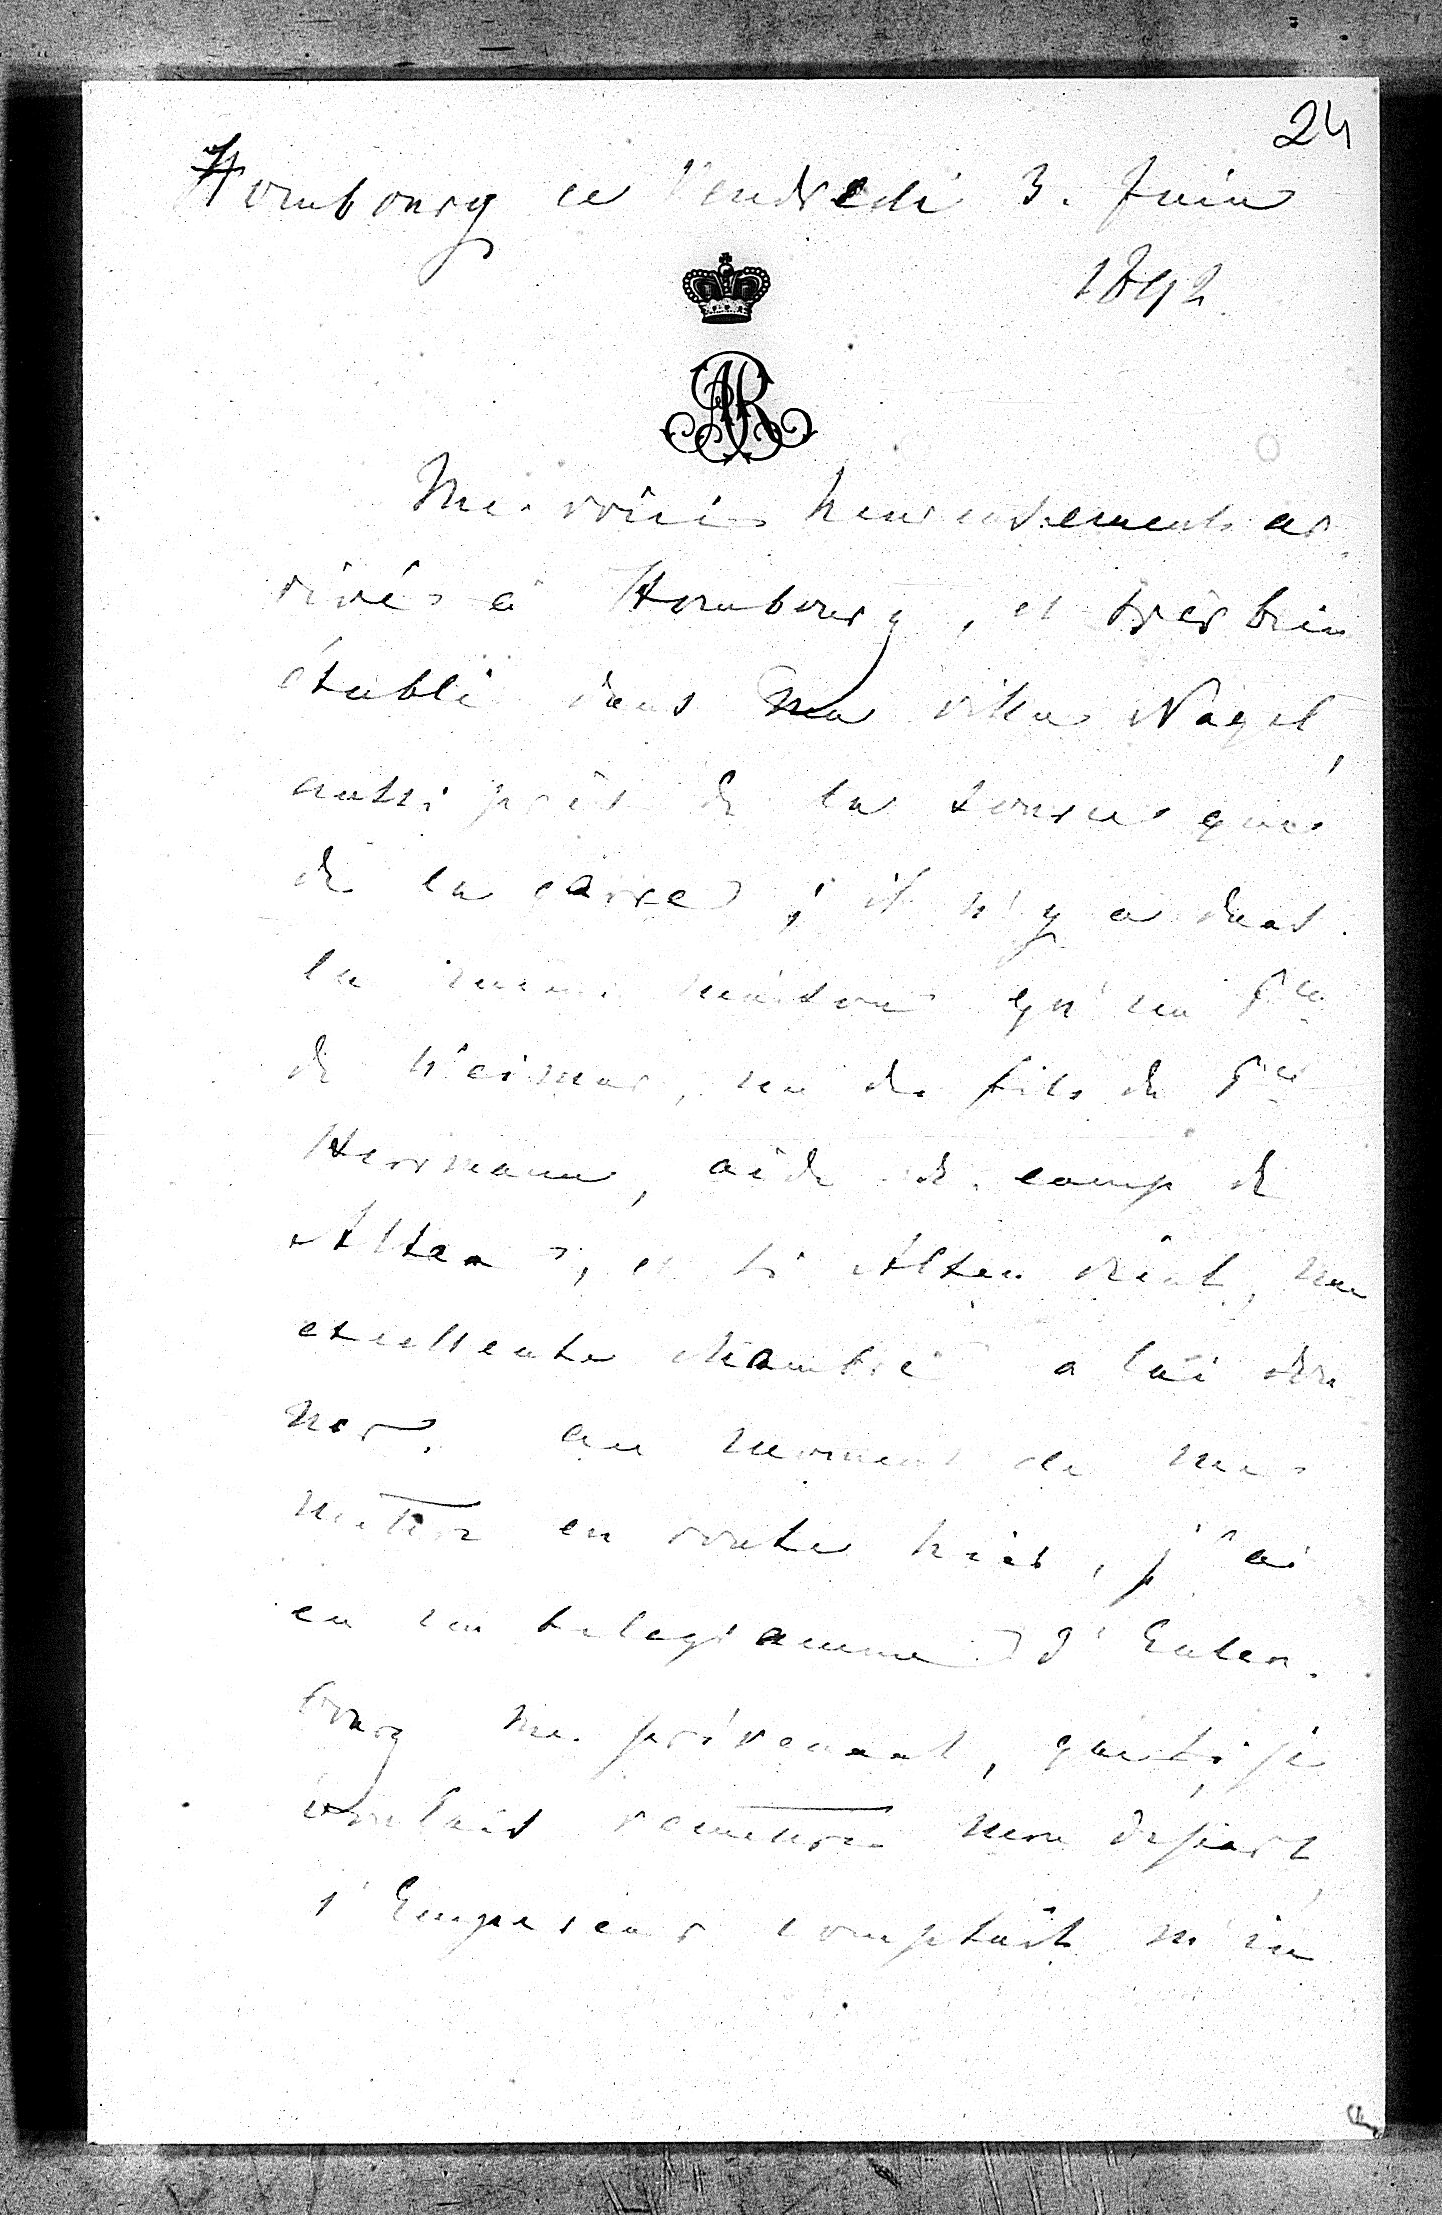 24
Hombourg ce Vendredi 3. Juin
1892
AR
Me voici heureusement ar
rivé à Hombourg, et très bien
établi dans ma villa Nagel,
aussi près de la source que
de la gare; il n'y a dans
la même maison qu'un Pce
de Weimar, un des fils du Pce
Herrmann, aide de camp de
Alten, et si Alten vient, une
excellente chambre a lui don
ner. au moment de me
mettre en route hier, j'ai
eu un telegramme d'Eulen.
bourg me prévenant, que si je
voulais remettre mon départ,
l'Empereur comptait m'in